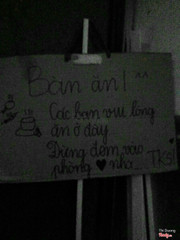 Bàn ăn! ^^
Các bạn vui lòng
ăn ở đây
Đừng đem vào
phòng ♥ nha... TKS!